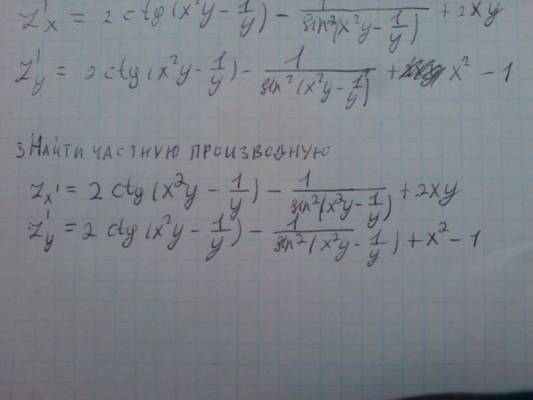 z'x = 2 ctg(x²y - 1/y) - 1/sin²(x²y - 1/y) + 2xy
z'y = 2 ctg(x²y - 1/y) - 1/sin²(x²y - 1/y) + x² - 1
3 НАЙТИ ЧАСТНУЮ ПРОИЗВОДНУЮ
zx' = 2 ctg(x²y - 1/y) - 1/sin²(x²y - 1/y) + 2xy
z'y = 2 ctg(x²y - 1/y) - 1/sin²(x²y - 1/y) + x² - 1